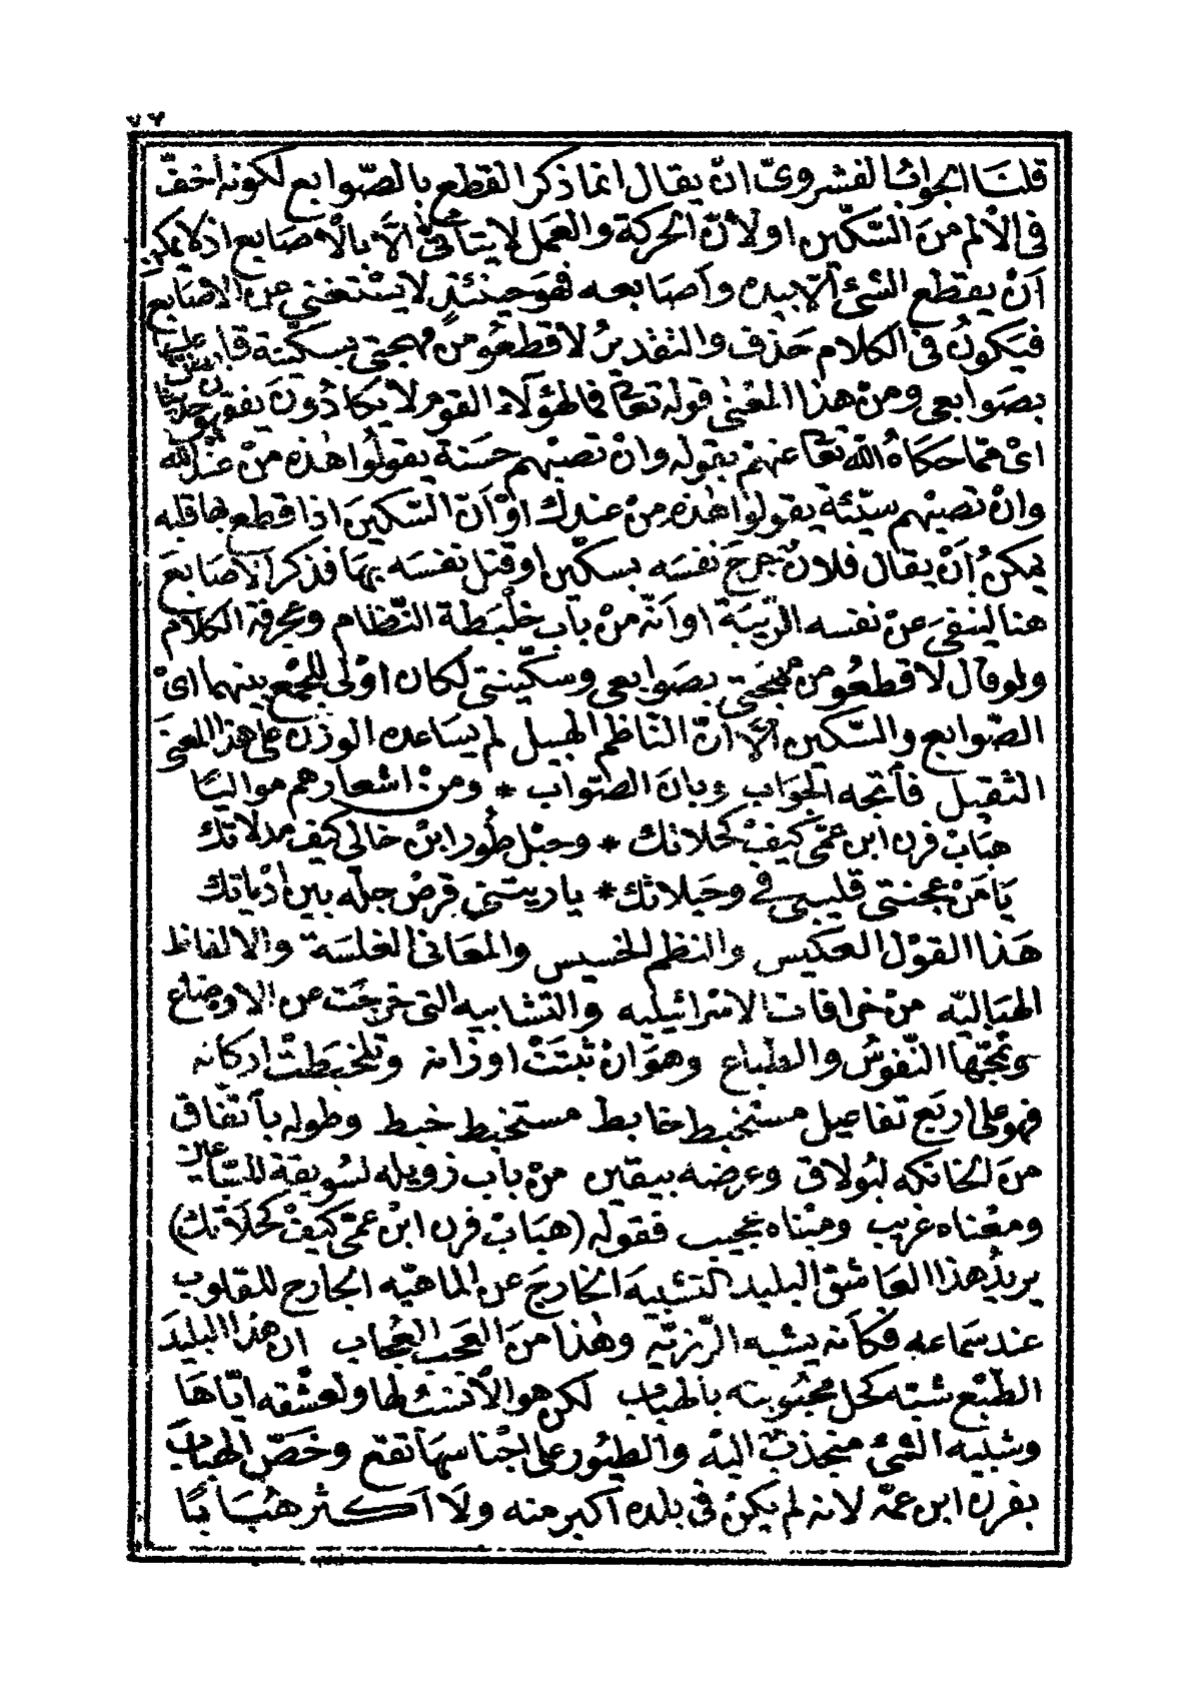 ٧٦
قلنَا الجوابُ الفشرويّ انْ يقال انما ذكر القطع بالصّوابع لكونه أخفّ
فى الأَلم منَ السّكين او لأنّ الحركة والعمل لا يتأتّى الّا بالأصَابع اذ لا يمكن
اَنْ يقطع الشئ الّا بيده وأصَابعه فهوَ حينئذٍ لا يسْتغنى عن الاصَابع
فيَكونُ فى الكلام حَذف والتقديرُ لا قطعُو منْ مهجتى بسكّينة قابضٌ عليها
بصَوابعى ومنْ هذا المعْنى قوله تعَالى فما لهؤلاء القوم لا يكادُونَ يفقهون حديثًا
اىْ ممّا حكاهُ الله تعَالى عنهمْ بقوله وانْ تصبْهم حسَنة يقولُوا هٰذه منْ عنْد الله
وانْ تصبْهم سيّئة يقولوا هٰذه منْ عندك اوْ اَنّ السّكينَ اذا قطع بها قلبه
يمكنُ اَنْ يقال فلانٌ جرحَ نفسَه بسكّين او قتل نفسَه بهَا فذكر الأصَابعَ
هنا لينفىَ عنْ نفسه الرّيبَة او اَنّه منْ باب خلْبَطة النّظام وعجرفة الكلام
ولو قال لا قطعُو من مهجَتى بصَوابعى وسكّينتى لكان اوْلى للجمْع بينهما اىْ
الصّوابع والسّكين الّا انّ النّاظم الهبيل لم يسَاعده الوزْن على هذا المعنىَ
الثقيل فأتّجه الجوَاب وبانَ الصّواب * ومنْ اشعارهم مواليّا
هبَابْ فرن ابن عمّى كيفْ كحلاتك * وحبْل طُور ابنْ خالى كيف مدلاتك
يَا مَنْ عجنتى قليبى فى وحَيلاتك * يا ريتنى قرصْ جلّه بين اَدْياتك
هَذا القوْل العكيس والنظم الخسيس والمعَانى الغلسَة والالفاظ
الهبَاليّه منْ خرافات الاسْرائيليه والتشابيه التى خرجَت عن الاوضاع
وتمجّها النّفوسُ والطباع وهوَ انْ ثبتَتْ اوزانه وتلخبَطتْ اركانه
فهو على اربَع تفاعيل مستخبط خابط مستخبط خبط وطوله بأتفاق
منَ الخانكه لبُولاق وعرضه بيقين منْ باب زويله لسُويقة السّبّاعين
ومعْناه غريب ومبْناه عجيب فقوله (هبَابْ فرن ابنْ عمّى كيفْ كحلَاتك)
يريدُ هذا العَاشقْ البليد التشبيهَ الخارجَ عن الماهيّه الجارح للقلوب
عند سَماعه فكأنه يشبه الرّزيّه وهٰذا منَ العجَب العُجاب ان هذا البليدَ
الطبْع شبّه كحل محبُوبته بالهبَاب لكن هو الأنسبُ لها ولعشْقه ايّاهَا
وشبيه الشئ منجذبٌ اليْه والطيُور على اجْناسهَا تقع وخَصّ الهبَاب
بفرن ابن عمّه لانه لم يكنْ فى بلده أكبر منه ولَا اَكثر هبَابًا